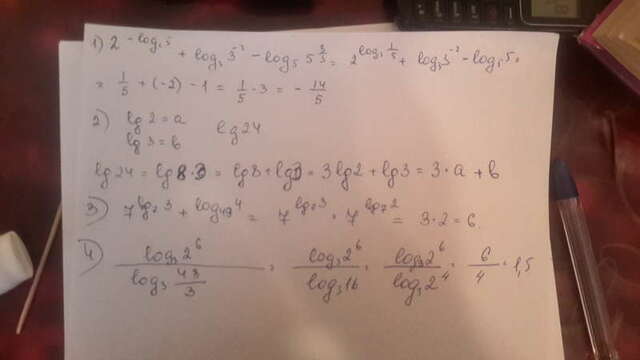 1) 2^(-log₂5) + log₃ 3^(-2) - log₅ 5 = 2^(log₂ 1/5) + log₃ 3^(-2) - log₅ 5 =
= 1/5 + (-2) - 1 = 1/5 - 3 = - 14/5
2) lg 2 = a lg 24
lg 3 = b
lg 24 = lg 8·3 = lg 8 + lg 3 = 3 lg 2 + lg 3 = 3·a + b
3) 7^(log₇ 3) + log₄₉ 4 = 7^(log₇ 3) · 7^(log₇ 2) = 3·2 = 6
4) log₃ 2⁶ / log₃ 48/3 = log₃ 2⁶ / log₃ 16 = log₃ 2⁶ / log₃ 2⁴ = 6/4 = 1,5